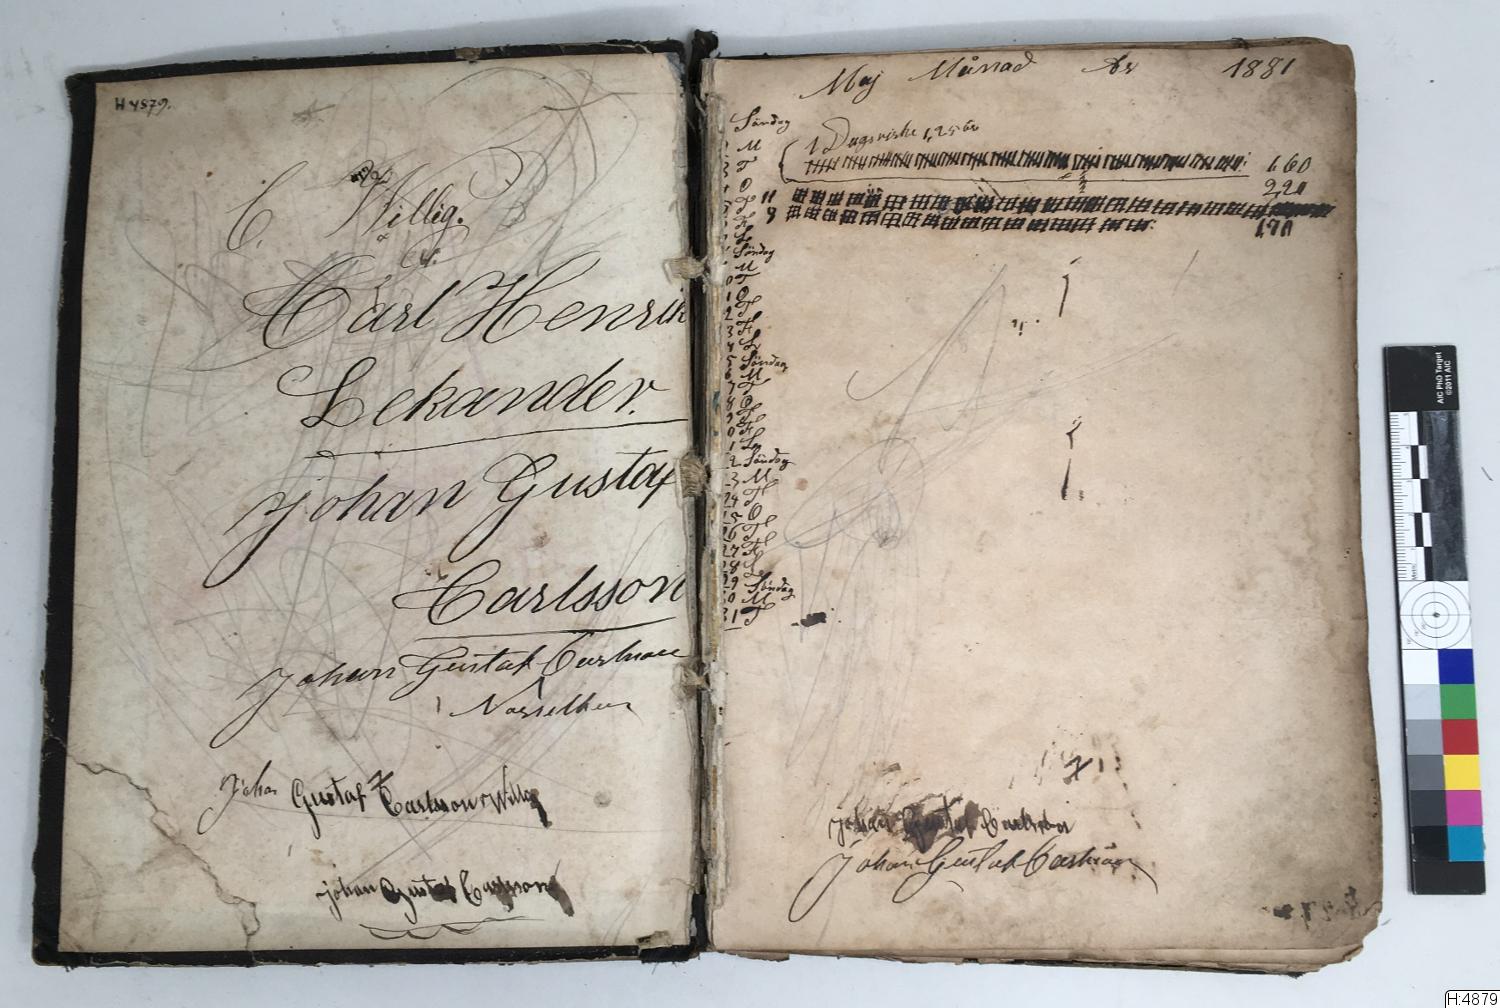 H 4879.
C. Willig.
Carl Henrik
Lekander.
Johan Gustaf
Carlsson
Johan Gustaf Carlsson
Johan Gustaf Carlsson
Johan Gustaf Carlsson
Maj Månad År 1881
Söndag
M
T
O
T 11
F 9
L
Söndag
M
T
O
T
F
L
Söndag
M
T
O
T
F
L
Söndag
23 M
24 T
25 O
26 T
27 F
28 L
29 Söndag
30 M
31 T
1,25 öre
160
220
Johan Gustaf Carlsson
Johan Gustaf Carlsson
AIC PhD Target
©2011 AIC
H:4879